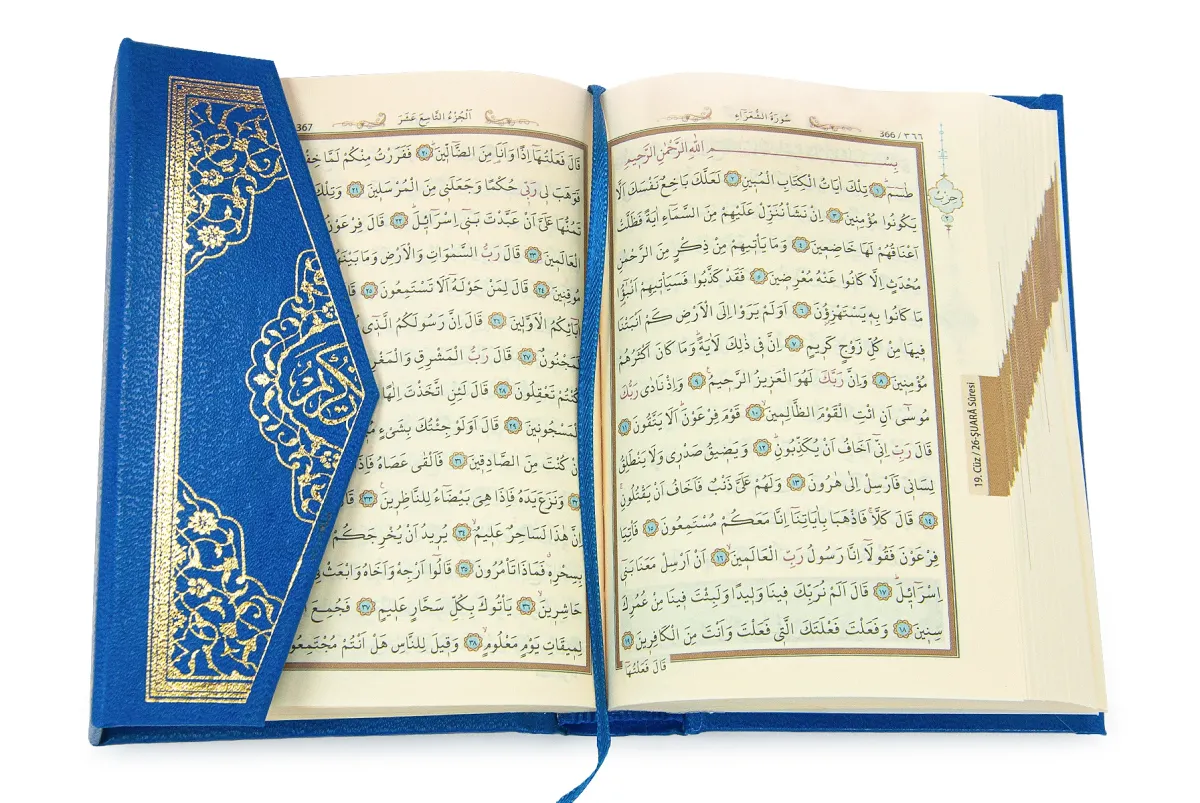 سُورَةُ الشُّعَرَٓاءِ
366 / ٣٦٦
بِسْمِ اللّٰهِ الرَّحْمٰنِ الرَّح۪يمِ
طٰسٓمٓ ١ تِلْكَ اٰيَاتُ الْكِتَابِ الْمُب۪ينِ ٢ لَعَلَّكَ بَاخِعٌ نَفْسَكَ اَلَّا
يَكُونُوا مُؤْمِن۪ينَ ٣ اِنْ نَشَأْ نُنَزِّلْ عَلَيْهِمْ مِنَ السَّمَٓاءِ اٰيَةً فَظَلَّتْ
اَعْنَاقُهُمْ لَهَا خَاضِع۪ينَ ٤ وَمَا يَأْت۪يهِمْ مِنْ ذِكْرٍ مِنَ الرَّحْمٰنِ
مُحْدَثٍ اِلَّا كَانُوا عَنْهُ مُعْرِض۪ينَ ٥ فَقَدْ كَذَّبُوا فَسَيَأْت۪يهِمْ اَنْبٰٓؤُا
مَا كَانُوا بِه۪ يَسْتَهْزِؤُ۫نَ ٦ اَوَلَمْ يَرَوْا اِلَى الْاَرْضِ كَمْ اَنْبَتْنَا
ف۪يهَا مِنْ كُلِّ زَوْجٍ كَر۪يمٍ ٧ اِنَّ ف۪ي ذٰلِكَ لَاٰيَةًۜ وَمَا كَانَ اَكْثَرُهُمْ
مُؤْمِن۪ينَ ٨ وَاِنَّ رَبَّكَ لَهُوَ الْعَز۪يزُ الرَّح۪يمُ۟ ٩ وَاِذْ نَادٰى رَبُّكَ
مُوسٰٓى اَنِ ائْتِ الْقَوْمَ الظَّالِم۪ينَۙ ١٠ قَوْمَ فِرْعَوْنَۜ اَلَا يَتَّقُونَ ١١
قَالَ رَبِّ اِنّ۪ٓي اَخَافُ اَنْ يُكَذِّبُونِۜ ١٢ وَيَض۪يقُ صَدْر۪ي وَلَا يَنْطَلِقُ
لِسَان۪ي فَاَرْسِلْ اِلٰى هٰرُونَ ١٣ وَلَهُمْ عَلَيَّ ذَنْبٌ فَاَخَافُ اَنْ يَقْتُلُونِۚ
١٤ قَالَ كَلَّاۚ فَاذْهَبَا بِاٰيَاتِنَٓا اِنَّا مَعَكُمْ مُسْتَمِعُونَ ١٥ فَأْتِيَا
فِرْعَوْنَ فَقُولَٓا اِنَّا رَسُولُ رَبِّ الْعَالَم۪ينَۙ ١٦ اَنْ اَرْسِلْ مَعَنَا بَن۪ٓي
اِسْرَٓائ۪لَۜ ١٧ قَالَ اَلَمْ نُرَبِّكَ ف۪ينَا وَل۪يدًا وَلَبِثْتَ ف۪ينَا مِنْ عُمُرِكَ
سِن۪ينَۙ ١٨ وَفَعَلْتَ فَعْلَتَكَ الَّت۪ي فَعَلْتَ وَاَنْتَ مِنَ الْكَافِر۪ينَ ١٩
قَالَ فَعَلْتُهَٓا
حزب
٢
19. Cüz / 26-ŞUARÂ Sûresi
اَلْجُزْءُ التَّاسِعَ عَشَرَ
367
قَالَ فَعَلْتُهَٓا اِذًا وَاَنَا۬ مِنَ الضَّٓالّ۪ينَۜ ٢٠ فَفَرَرْتُ مِنْكُمْ لَمَّا
فَوَهَبَ ل۪ي رَبّ۪ي حُكْمًا وَجَعَلَن۪ي مِنَ الْمُرْسَل۪ينَ ٢١ وَتِلْكَ
تَمُنُّهَا عَلَيَّ اَنْ عَبَّدْتَ بَن۪ٓي اِسْرَٓائ۪لَۜ ٢٢ قَالَ فِرْعَوْنُ
الْعَالَم۪ينَۜ ٢٣ قَالَ رَبُّ السَّمٰوَاتِ وَالْاَرْضِ وَمَا بَيْنَهُمَا
مُوقِن۪ينَ ٢٤ قَالَ لِمَنْ حَوْلَهُٓ اَلَا تَسْتَمِعُونَ ٢٥ قَالَ
اٰبَٓائِكُمُ الْاَوَّل۪ينَ ٢٦ قَالَ اِنَّ رَسُولَكُمُ الَّذ۪ٓي
لَمَجْنُونٌ ٢٧ قَالَ رَبُّ الْمَشْرِقِ وَالْمَغْرِبِ
كُنْتُمْ تَعْقِلُونَ ٢٨ قَالَ لَئِنِ اتَّخَذْتَ اِلٰهًا
الْمَسْجُون۪ينَ ٢٩ قَالَ اَوَلَوْ جِئْتُكَ بِشَيْءٍ
اِنْ كُنْتَ مِنَ الصَّادِق۪ينَ ٣١ فَاَلْقٰى عَصَاهُ فَاِذَا
٣٢ وَنَزَعَ يَدَهُ فَاِذَا هِيَ بَيْضَٓاءُ لِلنَّاظِر۪ينَ۟ ٣٣ قَالَ
اِنَّ هٰذَا لَسَاحِرٌ عَل۪يمٌۙ ٣٤ يُر۪يدُ اَنْ يُخْرِجَكُمْ
بِسِحْرِه۪ۗ فَمَاذَا تَأْمُرُونَ ٣٥ قَالُٓوا اَرْجِهْ وَاَخَاهُ وَابْعَثْ فِي
حَاشِر۪ينَۙ ٣٦ يَأْتُوكَ بِكُلِّ سَحَّارٍ عَل۪يمٍ ٣٧ فَجُمِعَ
لِم۪يقَاتِ يَوْمٍ مَعْلُومٍۙ ٣٨ وَق۪يلَ لِلنَّاسِ هَلْ اَنْتُمْ مُجْتَمِعُونَ